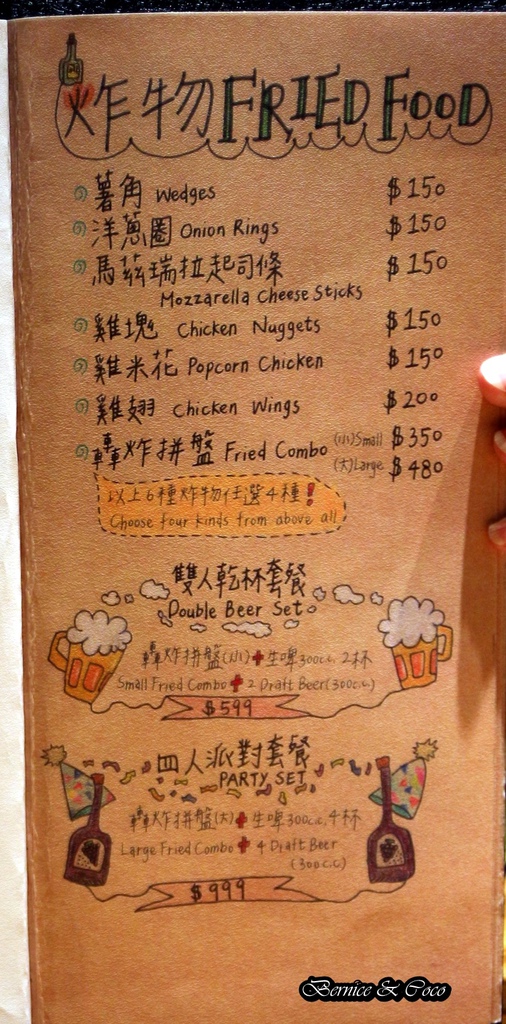 炸物 FRIED FOOD
薯角 Wedges $150
洋蔥圈 Onion Rings $150
馬茲瑞拉起司條 $150
Mozzarella Cheese Sticks
雞塊 Chicken Nuggets $150
雞米花 Popcorn Chicken $150
雞翅 Chicken Wings $200
轟炸拼盤 Fried Combo (小)Small $350
(大)Large $480
以上6種炸物任選4種!
Choose four kinds from above all
雙人乾杯套餐
Double Beer Set
轟炸拼盤(小)+生啤300c.c. 2杯
Small Fried Combo + 2 Draft Beer(300c.c.)
$599
四人派對套餐
PARTY SET
轟炸拼盤(大)+生啤300c.c. 4杯
Large Fried Combo + 4 Draft Beer
(300c.c)
$999
Bernice & Coco